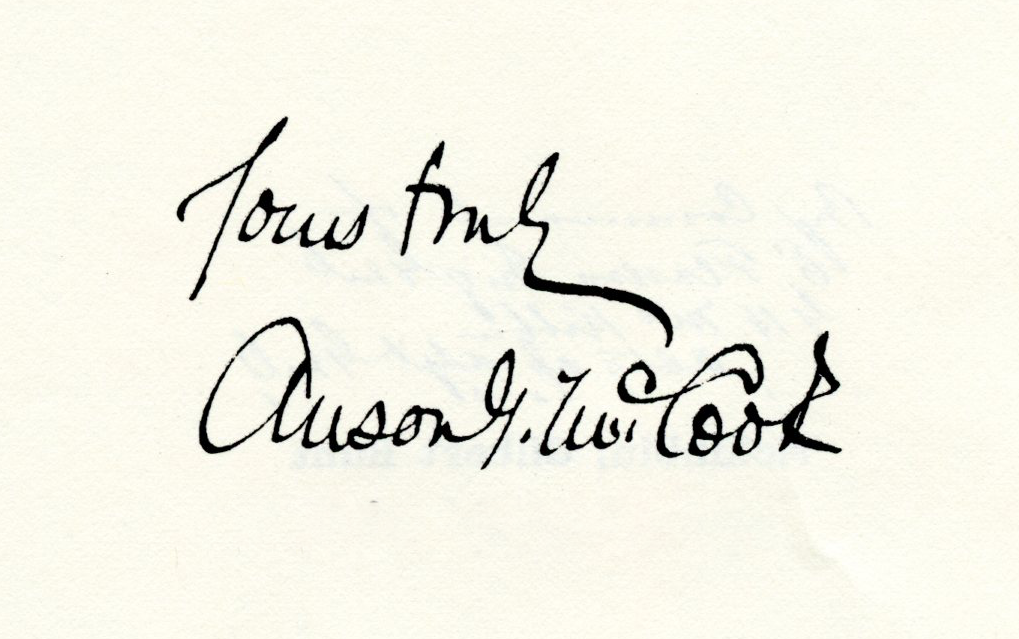 Yours truly
Anson G. McCook